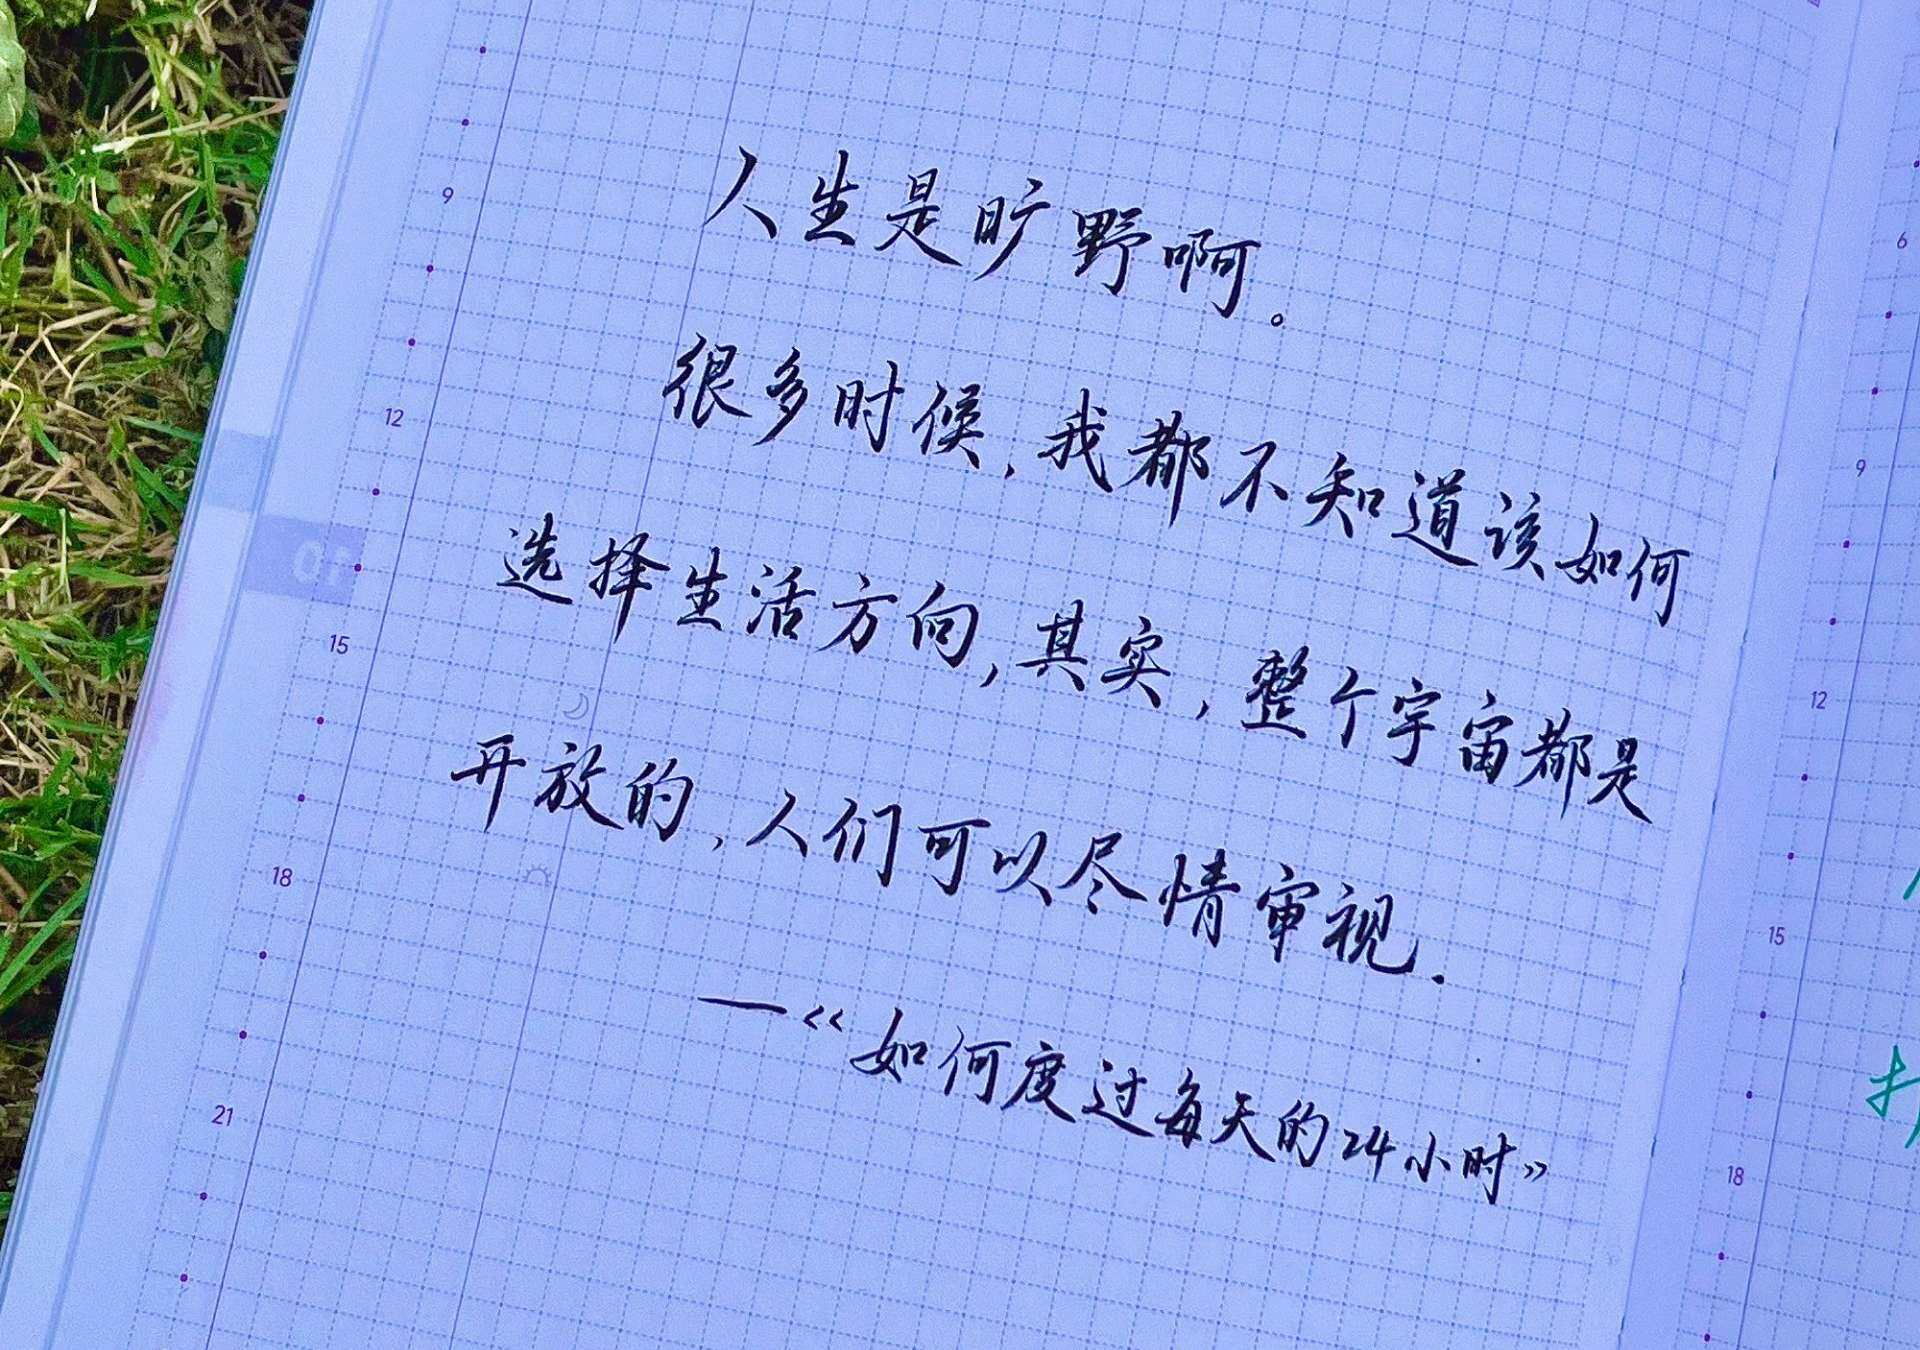 人生是旷野啊。
很多时候,我都不知道该如何
选择生活方向,其实,整个宇宙都是
开放的,人们可以尽情审视.
—《如何度过每天的24小时》
9
12
15
18
21
01
6
9
12
15
18